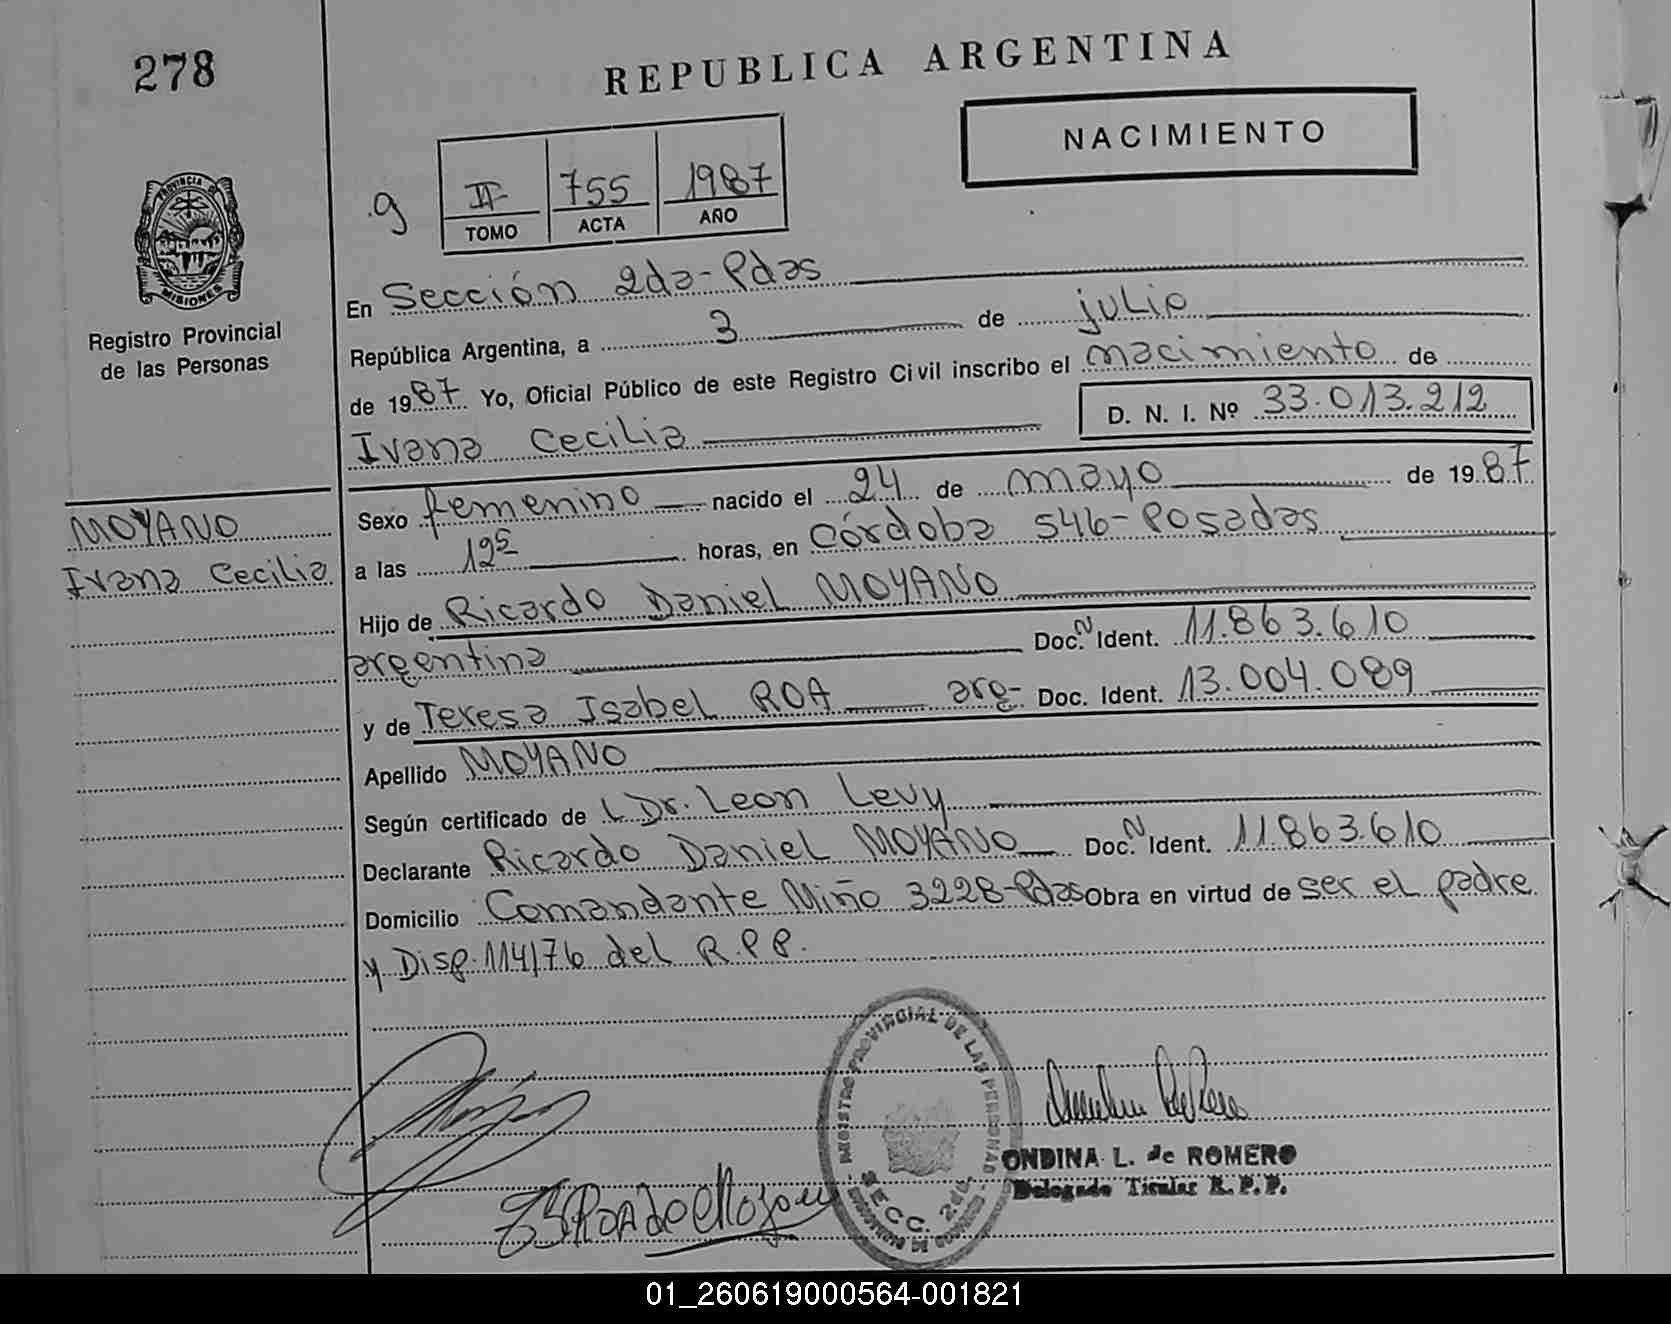 278
REPUBLICA ARGENTINA
NACIMIENTO
g
II 755 1987
TOMO ACTA AÑO
PROVINCIA DE
MISIONES
Registro Provincial
de las Personas
En Sección 2da-Pdas
República Argentina, a 3 de julio
de 1987 Yo, Oficial Público de este Registro Civil inscribo el nacimiento de
Ivana Cecilia D. N. I. Nº 33.013.212
Sexo femenino nacido el 24 de mayo de 1987
MOYANO
Ivana Cecilia
a las 12 horas, en Córdoba 546-Posadas
Hijo de Ricardo Daniel MOYANO
argentino Doc. N Ident. 11.863.610
y de Teresa Isabel ROA arg- Doc. Ident. 13.004.089
Apellido MOYANO
Según certificado de L Dr. Leon Levy
Declarante Ricardo Daniel MOYANO Doc. N Ident. 11.863.610
Domicilio Comandante Miño 3228-Pdas Obra en virtud de ser el padre
y Disp. 114/76 del R.P.P.
REGISTRO PROVINCIAL DE LAS PERSONAS
SECC. 2da.
ONDINA L. de ROMERO
Delegado Titular R. P. P.
01_260619000564-001821